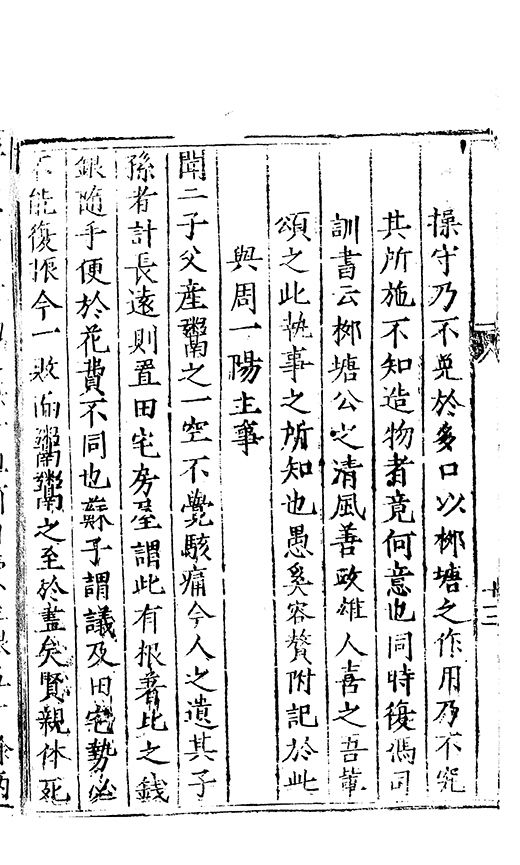 操守乃不免於多口以柳塘之作用乃不究
其所施不知造物者竟何意也同時復馮司
訓書云柳塘公之清風善政雄人喜之吾軰
頌之此執事之所知也愚奚容贅附記於此
與周一陽主事
聞二子父產鬻之一空不覺駭痛今人之遺其子
孫者計長遠則置田宅房屋謂此有根著比之錢
銀隨手便於花費不同也蘇子謂議及田宅勢必
不能復振今一敗而鬻鬻之至於盡矣賢親体死
十三